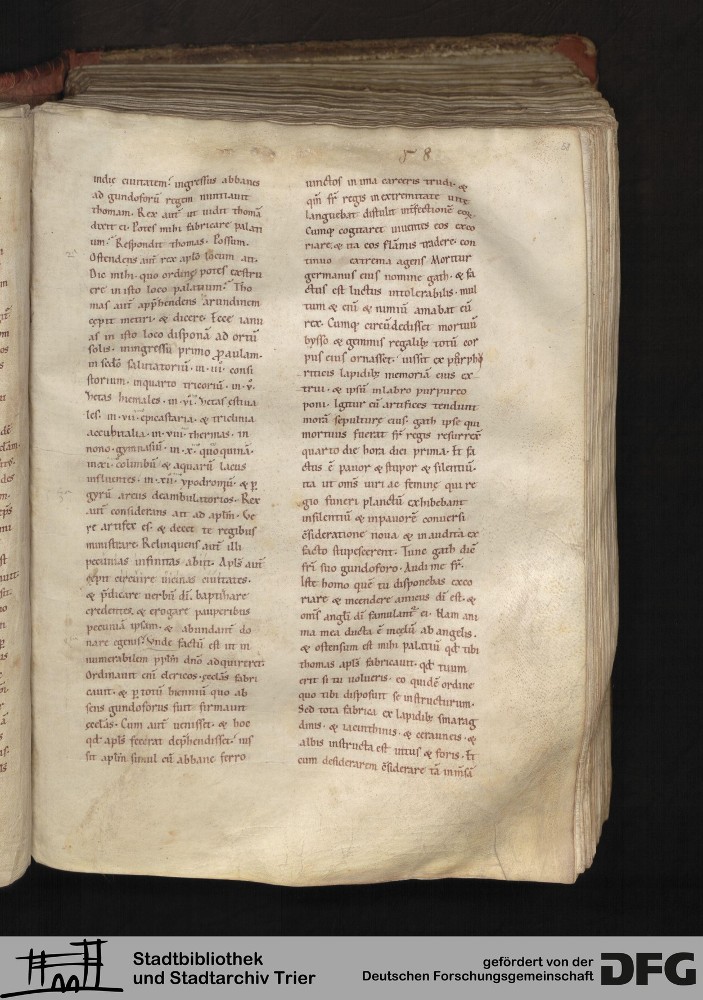 58
58
indie ciuitatem. ingressus abbanes
ad gundoforū regem nuntiauit
thomam. Rex aut̄ ut uidit thomā
dixit ei. Potes mihi fabricare palati
um. Respondit thomas. Possum.
Ostendens aut̄ rex aplō locum ait.
Dic mihi. quo ordine potes exstru
ere in isto loco palatium. Tho
mas aut̄ app̄hendens arundinem
cepit metiri. & dicere. Ecce ianu
as in isto loco disponā ad ortū
solis. iningressū primo ꝓaulam.
in sedō salutatoriū. in .iii. consi
storium. inquarto tricoriū. in .v.
zetas hiemales. in .vi. zetas estiua
les. in .vii. epicastaria. & triclinia
accubitalia. in .viii. thermas. in
nono. gymnasiū. in .x. quoquinā.
in .xi. columbū. & aquarū lacus
influentes. in .xii. ypodromū. & ꝑ
gyrū arcus deambulatorios. Rex
aut̄ considerans ait ad aplm̄. Ve
re artifex es. & decet te regibus
ministrare. Relinquens aut̄ illi
pecunias infinitas abiit. Apls̄ aut̄
cepit circuire uicinas ciuitates.
& p̄dicare uerbū dī. baptizare
credentes. & erogare pauperibus
pecuniā ipsam. & abundant̄ do
nare egenis. Vnde factū est ut in
numerabilem pplm̄ dn̄o adquireret.
Ordinauit eni clericos. ęcclās fabri
cauit. & ꝑ totū bienniū quo ab
sens gundoforus fuit firmauit
ęcclās. Cum aut̄ uenisset. & hoc
qd̄ apls̄ fecerat dep̄hendisset. ius
sit aplm̄ simul cū abbane ferro
uinctos in ima carceris trudi. &
qm̄ fr̄ regis in extremitate uitę
languebat distulit int̄fectionē eoꝝ.
Cumq; cogitaret uiuentes eos exco
riare. & ita eos flāmis tradere. con
tinuo extrema agens Moritur
germanus eius nomine gath. & fa
ctus est luctus intolerabilis. mul
tum & enī & nimiū amabat eū
rex. Cumq; circūdedisset mortuū
bysso & gemmis regalib; totū cor
pus eius ornasset. iussit ex porphy
riticis lapidib; memoriā eius ex
trui. & ipsū inlabro purpureo
poni. Igitur cū artifices tendunt
morā sepulturę eius. gath ipse qui
mortuus fuerat fr̄ regis resurrex̄
quarto die hora diei prima. Et fa
ctus ē pauor & stupor & silentiū.
ita ut om̄s uiri ac feminę qui re
gio funeri planctū exhibebant
insilentiū & inpauorē conuersi
c̄sideratione noua & inaudita ex
facto stupescerent. Tunc gath dic̄
fr̄i suo gundoforo. Audi me fr̄.
Iste homo quē tu disponebas exco
riare & incendere amicus dī est. &
om̄s angli dī famulant̄ ei. Nam ani
ma mea ducta ē in cęlū ab angelis.
& ostensum est mihi palatiū qd̄ tibi
thomas apls̄ fabricauit. qd̄ tuum
erit si tu uolueris. eo quidē ordine
quo tibi disposuit se instructurum.
Sed tota fabrica ex lapidib; smarag
dinis. & iacinthinis. & cerauneis. &
albis instructa est intus & foris. Et
cum desiderarem c̄siderare tā inm̄sā
Stadtbibliothek
und Stadtarchiv Trier
gefördert von der
Deutschen Forschungsgemeinschaft
DFG